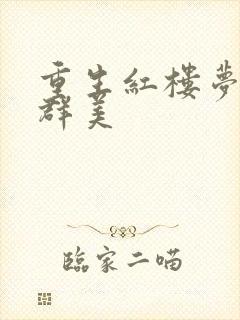 重生紅樓夢
群美
臨家二喵